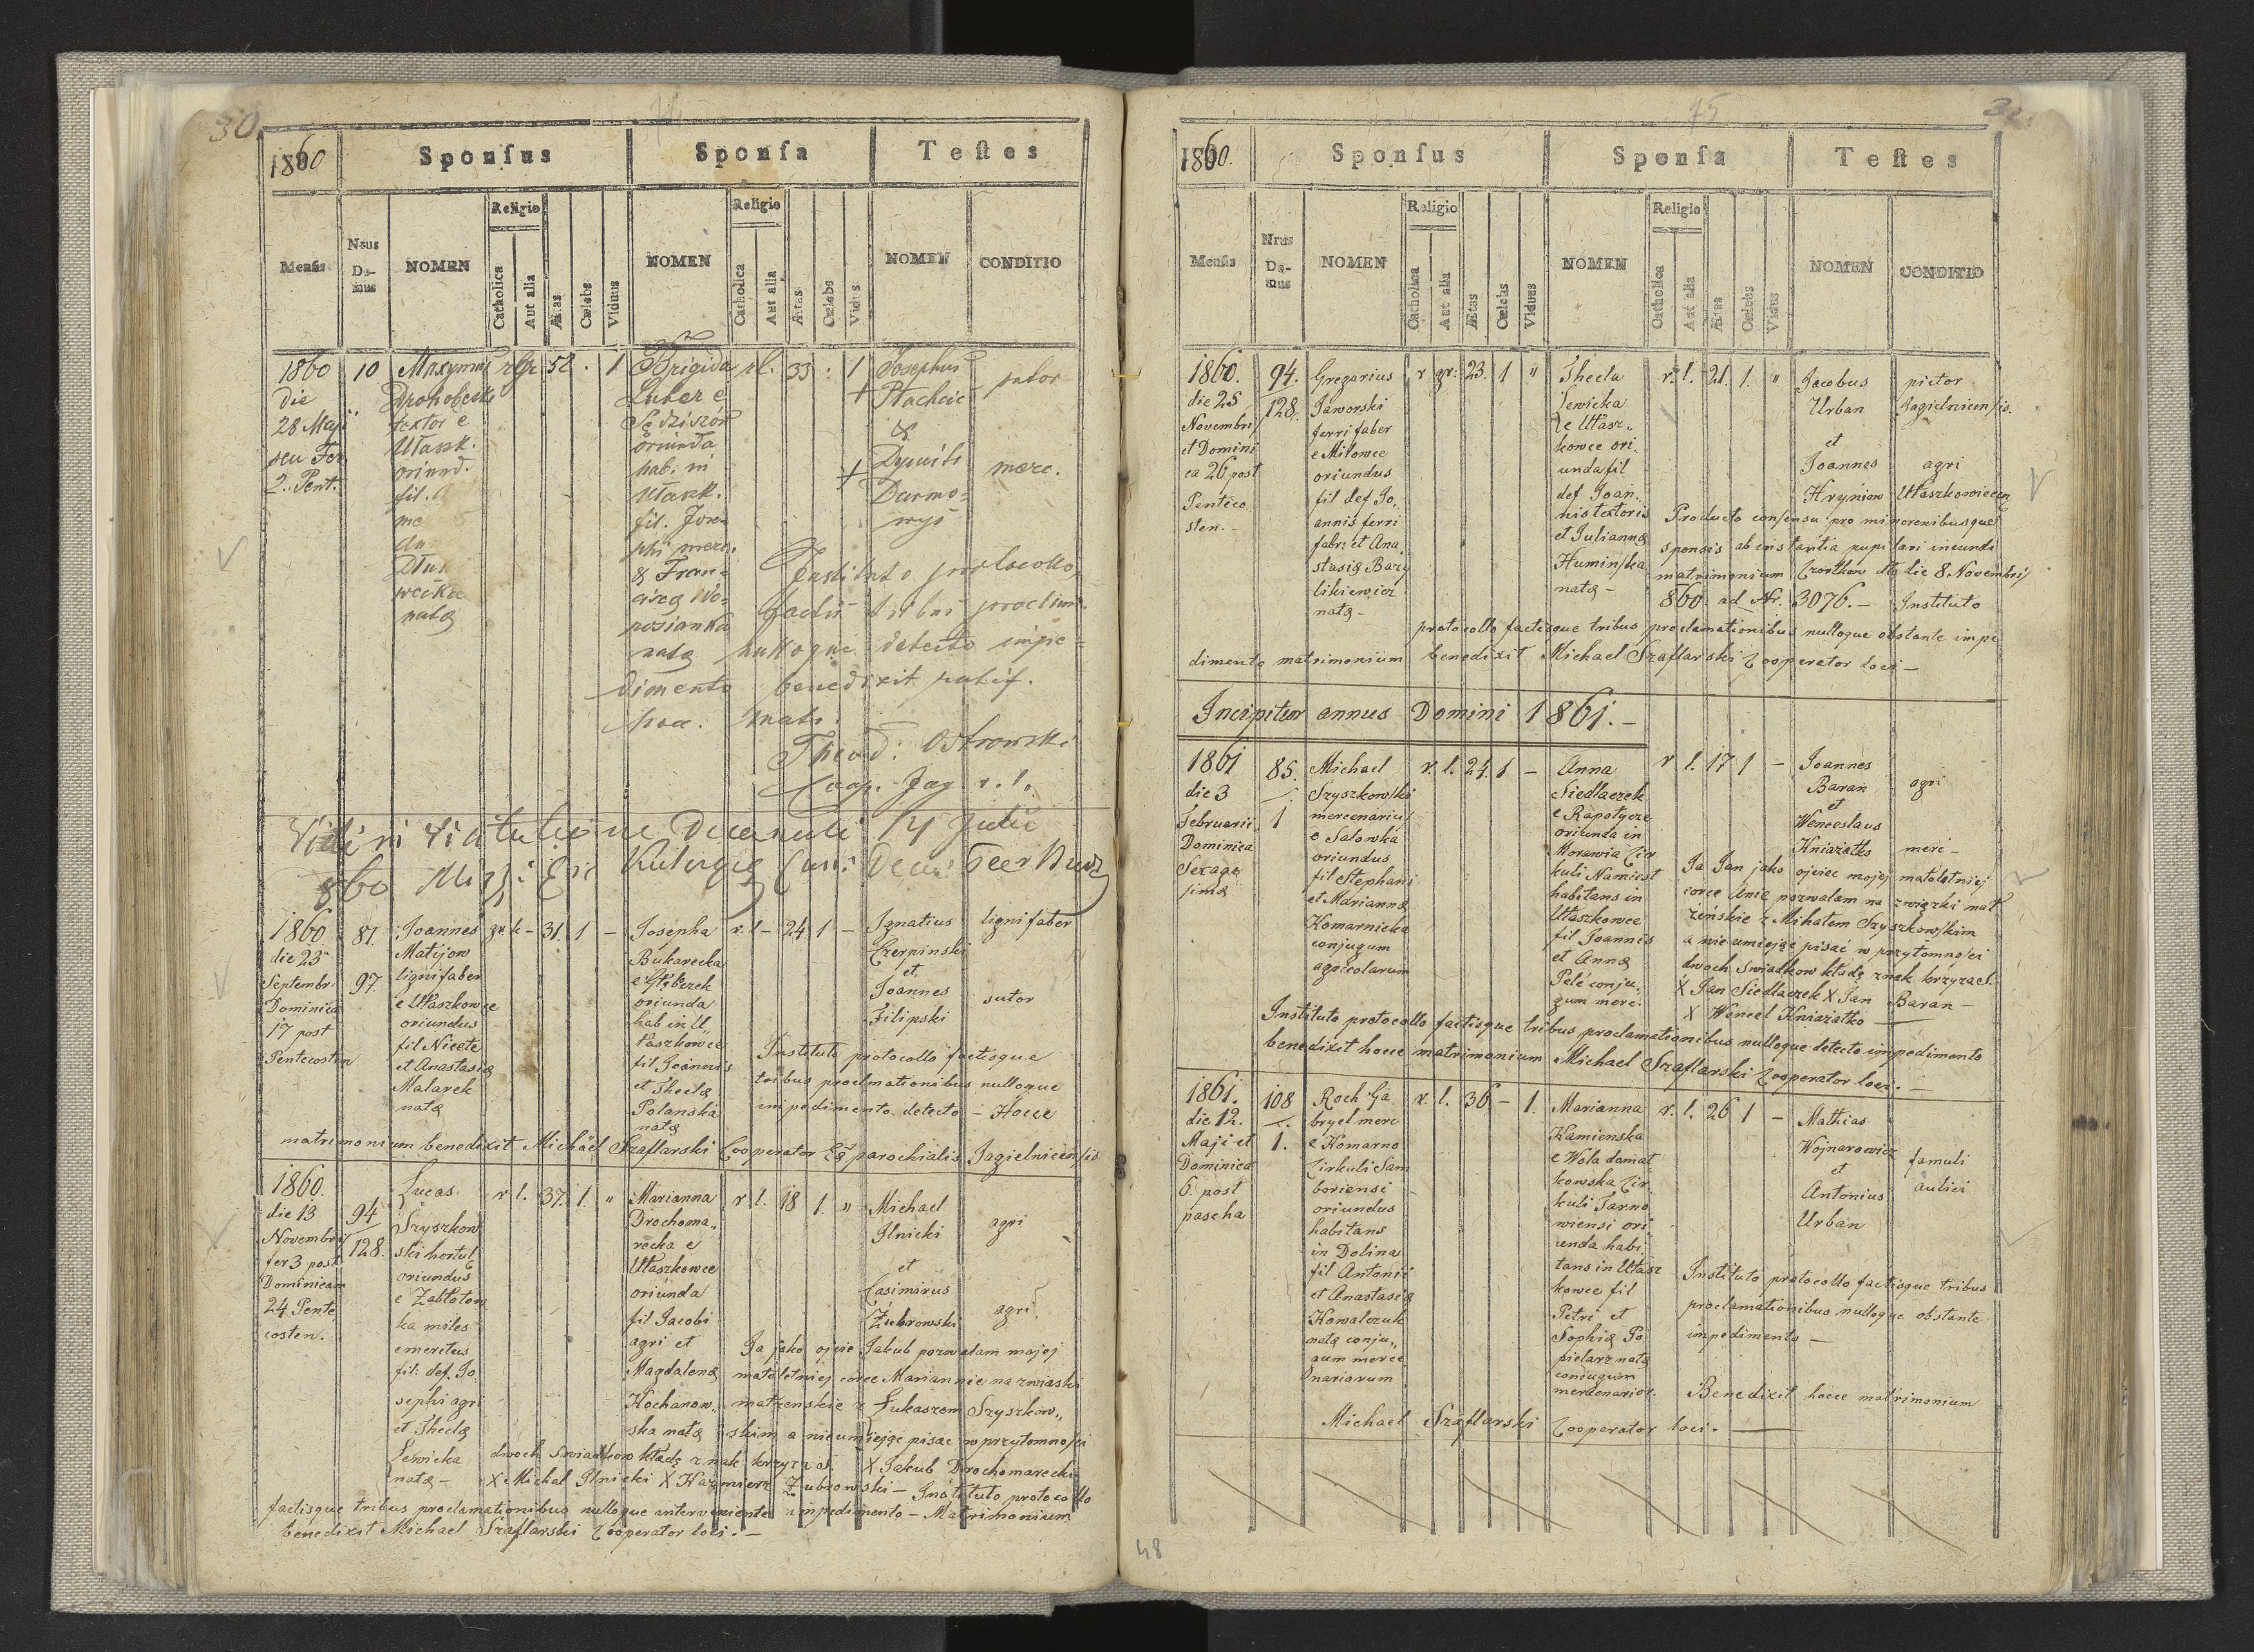 30.
1860
Sponſus
Sponſa
Teſtes
Mensis
Nrus Domus
NOMEN
Religio
Catholica
Aut alia
Ætas
Cœlebs
Viduus
NOMEN
Religio
Catholica
Aut alia
Ætas
Cœlebs
Vidua
NOMEN
CONDITIO
1860
die
28 Maji
seu Fer.
2. Pent.
10
textor e
Ułaszk.
oriund.
fil.
nata
52
1
Brigida
Luber e
oriunda
hab. in
Ułaszk.
fil. Jose-
phi merc.
& Fran-
nata
r.l.
33
1
Josephus
sutor
&
+
merc.
Instituto protocollo,
factis tribus proclam.
nulloque detecto impe-
dimento benedixit
matr.
Theod: Ostrowski
Coop. Jag r. l.
14 Julii
860
1860
die 23
Septembr:
Dominica
17 post
Pentecosten
81.
97.
Joannes
Matijow
lignifaber
e Ułaszkowce
oriundus
fil Nicete
et Anastasiæ
Malarek
natæ
31. 1 –
Josepha
Bukarecka
e Głęboczek
oriunda
hab in U„
łaszkowce
fil Joannis
et Theclæ
Polanska
natæ
r. l – 24 1 –
Ignatius
Czerpinski
et
Joannes
Filipski
lignifaber
sutor
Instituto protocollo factisque
tribus proclmationibus nulloque
impedimento detecto – Hocce
matrimonium benedixit Michäel Szaflarski Cooperator Eæ parochialis Jagielnicensis.
1860.
die 13
Novembris
fer 3 post
Dominicam
24 Pente
costen.
94
128.
Lucas
Szyszkow
ski hortul
oriundus
e Zabłotow
ka miles
emeritus
fil: def. Jo.
sephi agri
et Theclæ
Lewicka
natæ –
r l. 37. 1. "
Marianna
Drochoma„
recka e
Ułaszkowce
oriunda
fil Jacobi
agri et
Magdalenæ
Kochanow.
ska natæ
r l. 18 1. "
Michael
Ilnicki
et
Casimirus
Żubrowski
agri
agri
Ja jako ojcie Jakub pozwalam mojej
małoletniej corce Mariannie na zwiaski
matzenskie z Łukaszem Szyszkow„
skim a nie umiejąc pisac w przytomnosci
dwoch Swiadkow kładę znak krzyza S. X Jakub Drochomarecki
X Michał Ilnicki X Kazmierz Zubrowski – Instituto protocollo
factisque tribus proclamationibus nulloque interveniente impedimento – Matrimonium
benedixit Michael Szaflarski Cooperator loci. –
75
1860.
Sponſus
Sponſa
Teſtes
Mensis
Nrus Domus
NOMEN
Religio
Catholica
Aut alia
Ætas
Cœlebs
Viduus
NOMEN
Religio
Catholica
Aut alia
Ætas
Cœlebs
Viduus
NOMEN
CONDITIO
1860.
die 25
Novembris
et Domini
ca 26 post
Penteco
sten. –
94.
128.
Gregorius
Jaworski
ferri faber
e Milowce
oriundus
fil def Jo.
annis ferri
fabr: et Ana.
stasiæ Bazy
likiewicz
natæ –
r gr: 23. 1 "
Thecla
Lewicka
e Ułasz„
kowce ori„
unda fil
def Joan.
nis textoris
et Juliannæ
Huminska
natæ –
r. l. 21. 1. "
Jacobus
Urban
et
Joannes
Hryniow
pictor
Jagielnicensis.
agri
Ułaszkowiecen
Producto consensu pro minorenibusque
sponsis ab instantia pupilari ineundi
matrimonium Czortkow dto die 8 Novembris
860 ad Nr. 3076. – Instituto
protocollo factisque tribus proclamationibus nulloque obstante impe
dimento matrimonium benedixit Michael Szaflarski Cooperator loci –
Incipitur annus Domini 1861. –
1861
die 3
Februarii
Dominica
Sexage
sima
85.
1
Michael
Szyszkowski
mercenarius
e Salowka
oriundus
fil Stephani
et Mariannæ
Komarnicka
conjugum
agricolarum
r. l. 24. 1 –
Anna
Siedlaczek
e Rapotycze
oriunda in
Morawia Cir
kuli Namiest
habitans in
Ułaszkowce
fil Joannis
et Annæ
Pelc conju„
gum merc.
r l. 17 1 –
Joannes
Baran
et
Wenceslaus
Kniazatko
agri
merc –
Ja Jan jako ojciec mojej małoletniej
corce Anie pozwalam na związki mał
żeńskie z Mihałem Szyszkowskim
a nie umiejąc pisać w przytomności
dwoch Swiadkow kładę znak krzyza S.
X Jan Siedlaczek X Jan Baran –
X Wencel Kniazatko –
Instituto protocollo factisque tribus proclamationibus nulloque detecto impedimento
benedixit hocce matrimonium Michael Szaflarski Cooperator loci.
1861.
die 12.
Maji et
Dominica
6. post
pascha
108
1.
Roch Ga
bryel merc
e Komarno
Cirkuli Sam
boriensi
oriundus
habitans
in Dolina
fil Antonii
et Anastasiæ
Kowalczuk
natæ conju„
gum merce
nariorum
r. l. 36. – 1.
Marianna
Kamienska
e Wola domat
kowska Cir.
kuli Tarno
wiensi ori
unda habi.
tans in Ułasz
kowce fil
Petri et
Sophiæ Po
pielarz natæ
conjugum
mercenarior.
r. l. 26 1 –
Mathias
Wojnarowicz
et
Antonius
Urban
famuli
aulici
Instituto protocollo factisque tribus
proclamationibus nulloque obstante
impedimento –
Benedixit hocce matrimonium
Michael Szaflarski Cooperator loci. –
48